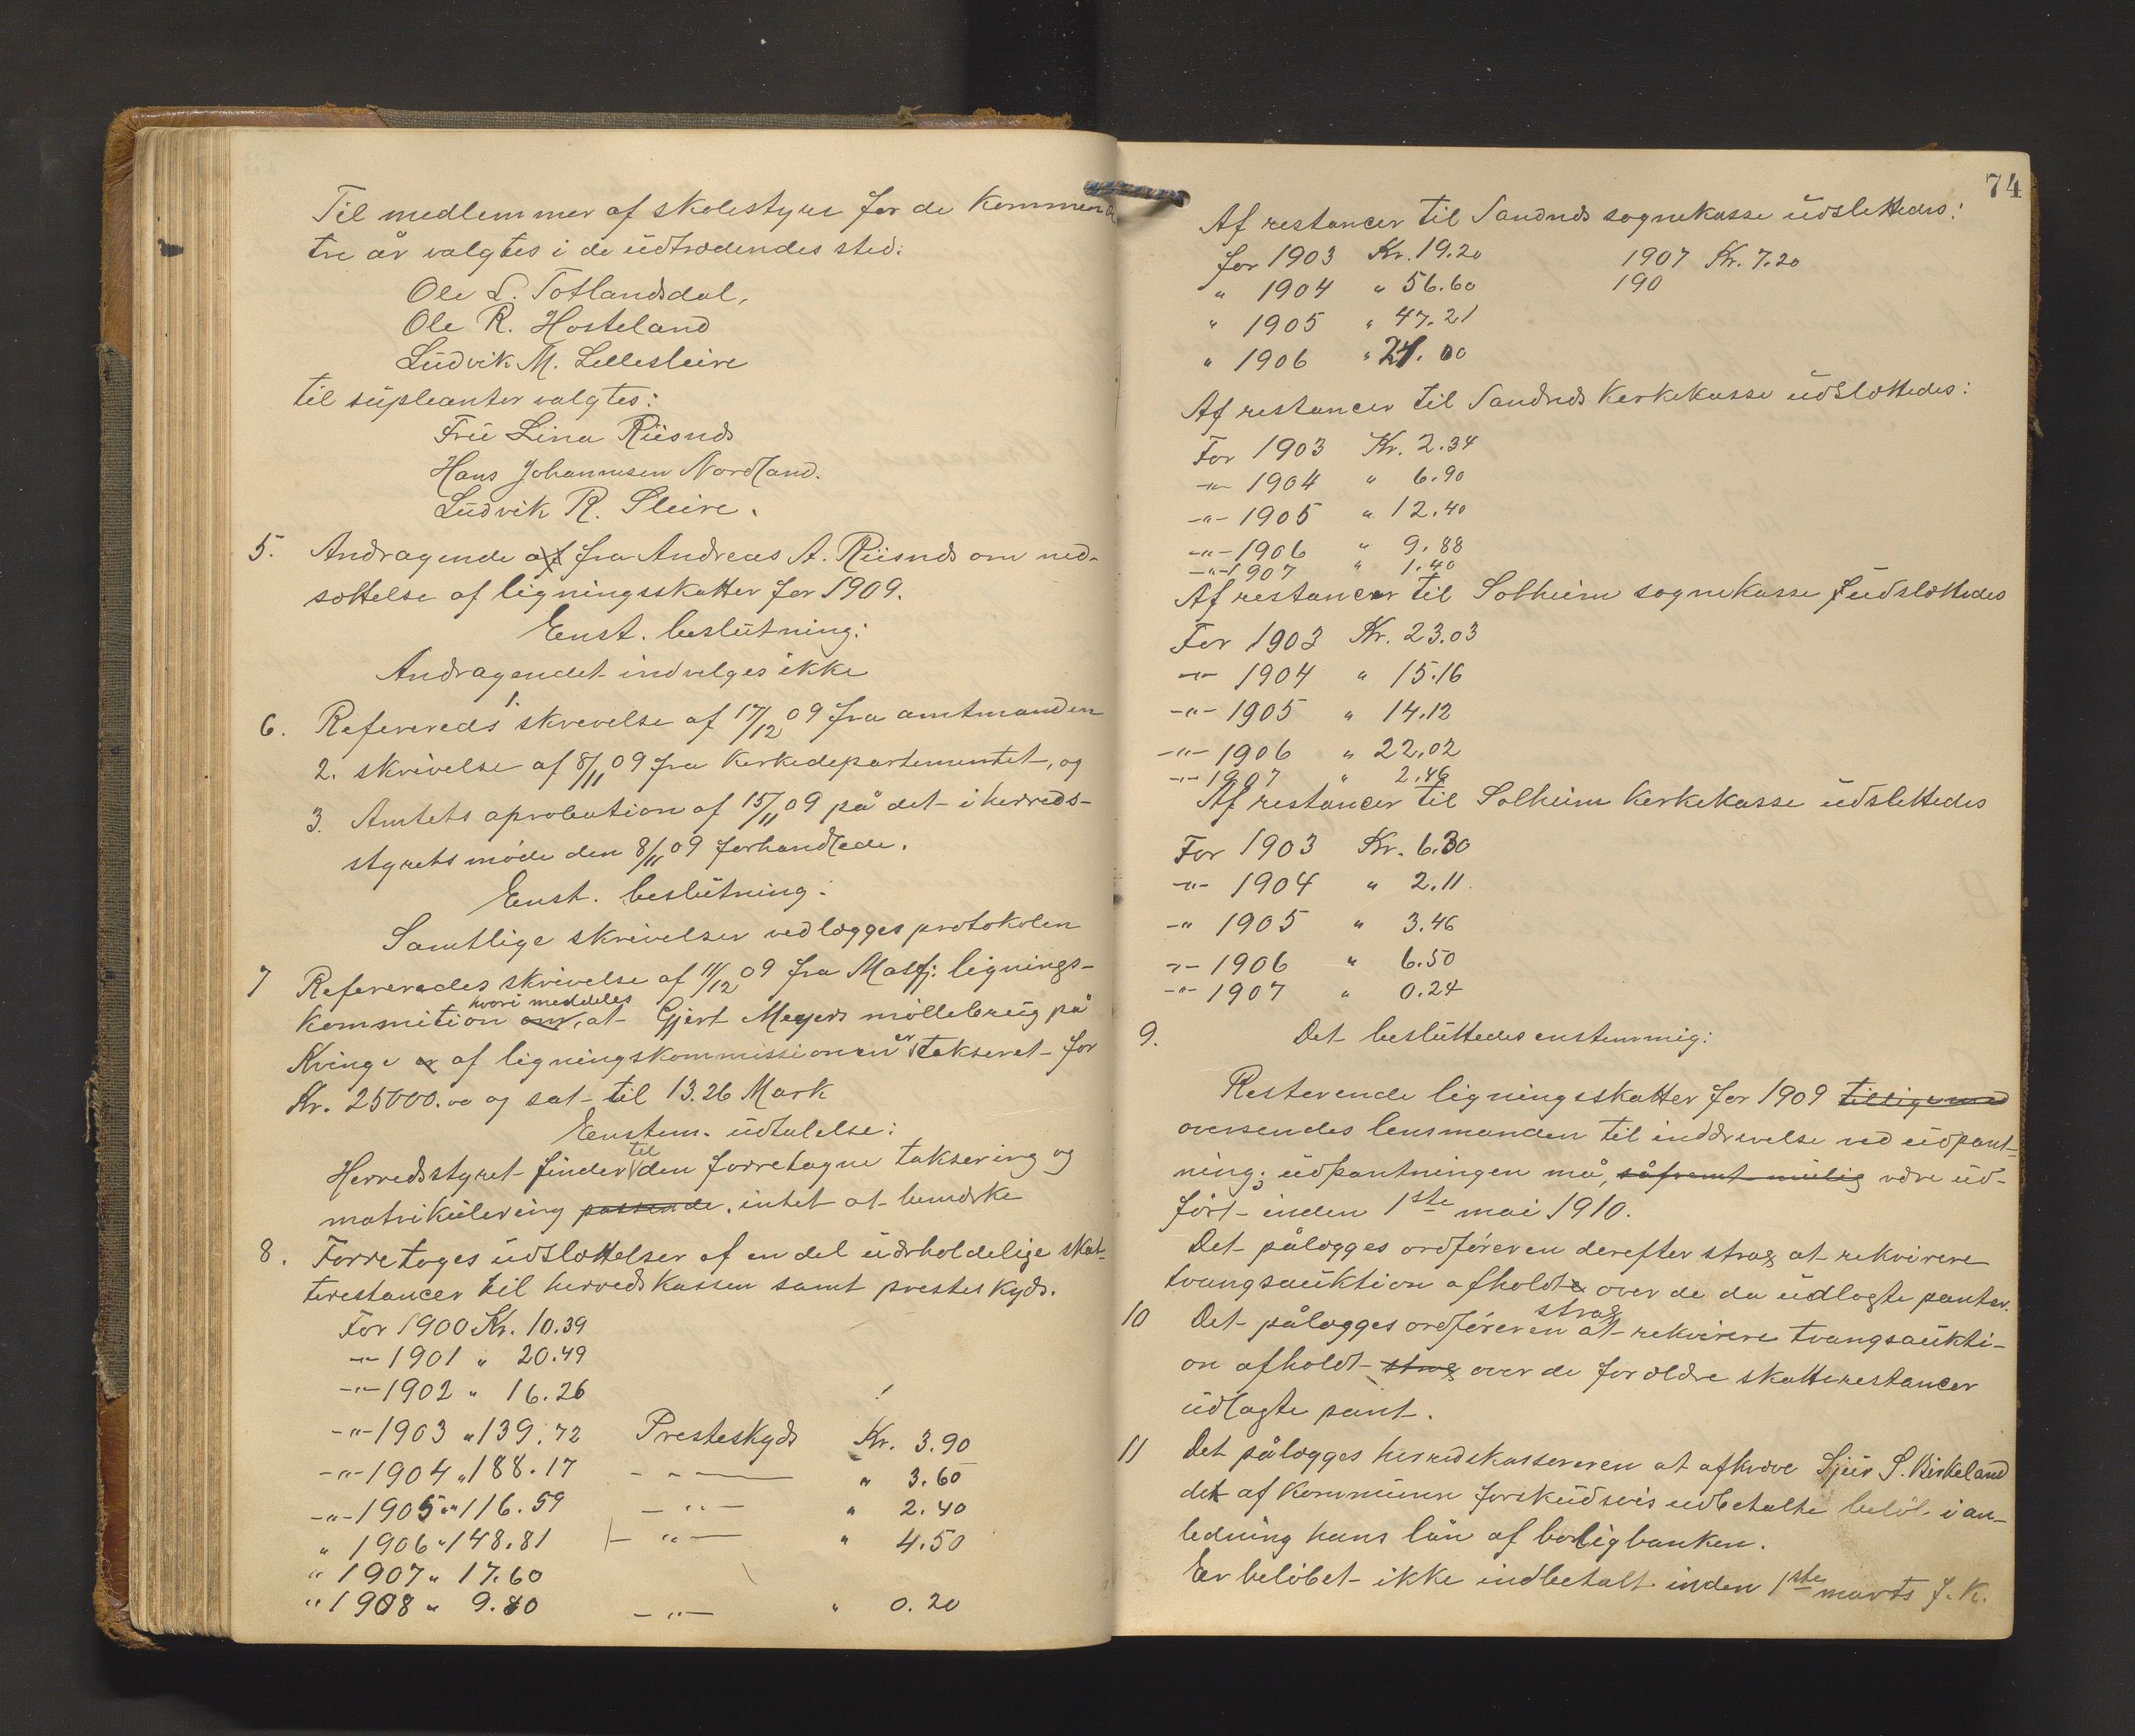 Til medlemmer af skolestyre for de kommende
tre år valgtes i de udtrædendes sted:
Ole L. Totlandsdal,
Ole R. Hosteland
Ludvik M. Lellesleire
til supleanter valgtes:
Fru Lina Riisnæs
Hans Johannesen Nordland.
Ludvik R. Sleire.
5. Andragende af fra Andreas A. Riisnæs om ned-
sættelse af ligningsskatter for 1909.
Enst. beslutning:
Andragendet indvelges ikke
6. Refereredes 1. skrevelse af 17/12 09 fra amtmanden
2. skrivelse af 8/11 09 fra Kerkedepartementet, og
3. Amtets aprobation af 15/11 09 på det i herreds-
styrets møde den 8/11 09 forhandlede.
Enst. beslutning:
Samtlige skrivelser vedlægges protokolen
7 Refereredes skrivelse af 11/12 09 fra Masfj: lignings-
kommition om, hvori meddeles at Gjert Meyers møllebrug på
Kvinge er af ligningskommissionen er takseret for
Kr. 25000.00 og sat til 13.26 Mark
Enstem. udtalelse:
Herredsstyret finder til den forretagne taksering og
matrikulering passende, intet at bemærke
8. Forretoges udslættelser af en del uerholdelige skat-
terestancer til herredskassen samt presteskyds.
For 1900 Kr. 10.39
-"- 1901 " 20.49
-"- 1902 " 16.26
-"- 1903 " 139.72 Presteskyds Kr. 3.90
-"- 1904 " 188.17 -"- " 3.60
-"- 1905 " 116.59 -"- " 2.40
" 1906 " 148.81 -"- " 4.50
" 1907 " 17.60
" 1908 " 9.80 -"- " 0.20
74
Af restancer til Sandnæs sognekasse udslettedes:
for 1903 Kr. 19.20 1907 Kr. 7.20
" 1904 " 56.60 190
" 1905 " 47.21
" 1906 " 24.00
Af restancer til Sandnæs Kerkekasse udslættedes:
For 1903 Kr. 2.34
-"- 1904 " 6.90
-"- 1905 " 12.40
-"- 1906 " 9.88
-"- 1907 " 1.40
Af restancer til Solheim sognekasse udslættedes
For 1903 Kr. 23.03
-"- 1904 " 15.16
-"- 1905 " 14.12
-"- 1906 " 22.02
-"- 1907 " 2.46
Af restancer til Solheim Kerkekasse udslettedes
For 1903 Kr. 6.30
-"- 1904 " 2.11.
-"- 1905 " 3.46
-"- 1906 " 6.50
-"- 1907 " 0.24
9. Det besluttedes enstemmig:
Resterende ligningsskatter for 1909 tilligemed
oversendes lensmanden til inddrivelse ved udpant-
ning; udpantningen må, såfremt mulig være ud-
ført inden 1ste mai 1910.
Det pålægges ordføreren derefter strax at rekvirere
tvangsauktion afholdt over de da udlagte panter.
10 Det pålægges ordføreren strax at rekvirere tvangsaukti-
on afholdt strax over de for ældre skatterestancer
udlagte pant.
11 Det pålægges herredskassereren at afkræve Sjur S. Birkeland
det af Kommunen forskudsvis udbetalte beløb i an-
ledning hans lån af boligbanken.
Er beløbet ikke indbetalt inden 1ste marts f. k.